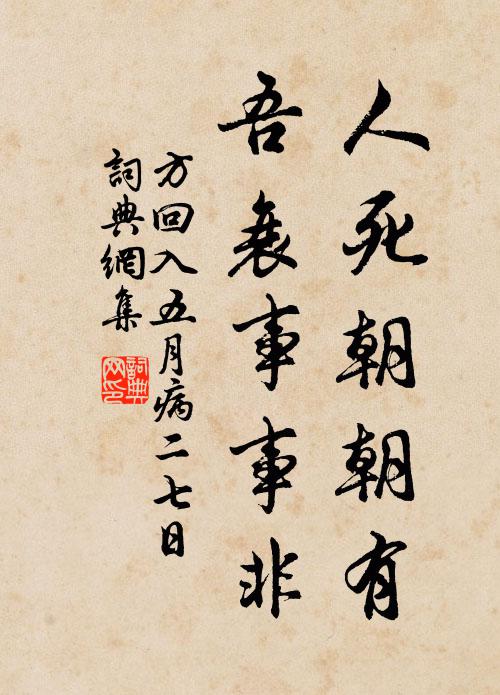 人死朝朝有
吾衰事事非
方回入五月病二七日
詞典網集
詞典网印